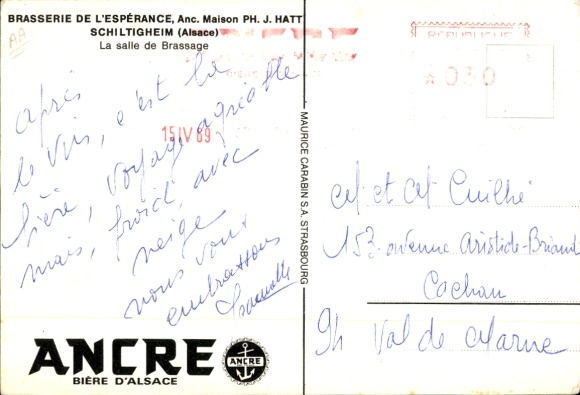 BRASSERIE DE L'ESPÉRANCE, Anc. Maison PH. J. HATT
SCHILTIGHEIM (Alsace)
La salle de Brassage
AA
après
le vin, c'est la
bière, voyage agréable
mais, froid, avec
neige
nous vous
embrassons
15 IV 69
ANCRE
BIÈRE D'ALSACE
ANCRE
MAURICE CARABIN S.A. STRASBOURG
REPUBLIQUE
*030
et Cuilhé
153 avenue Aristide-Briand
Cachan
94 Val de Marne